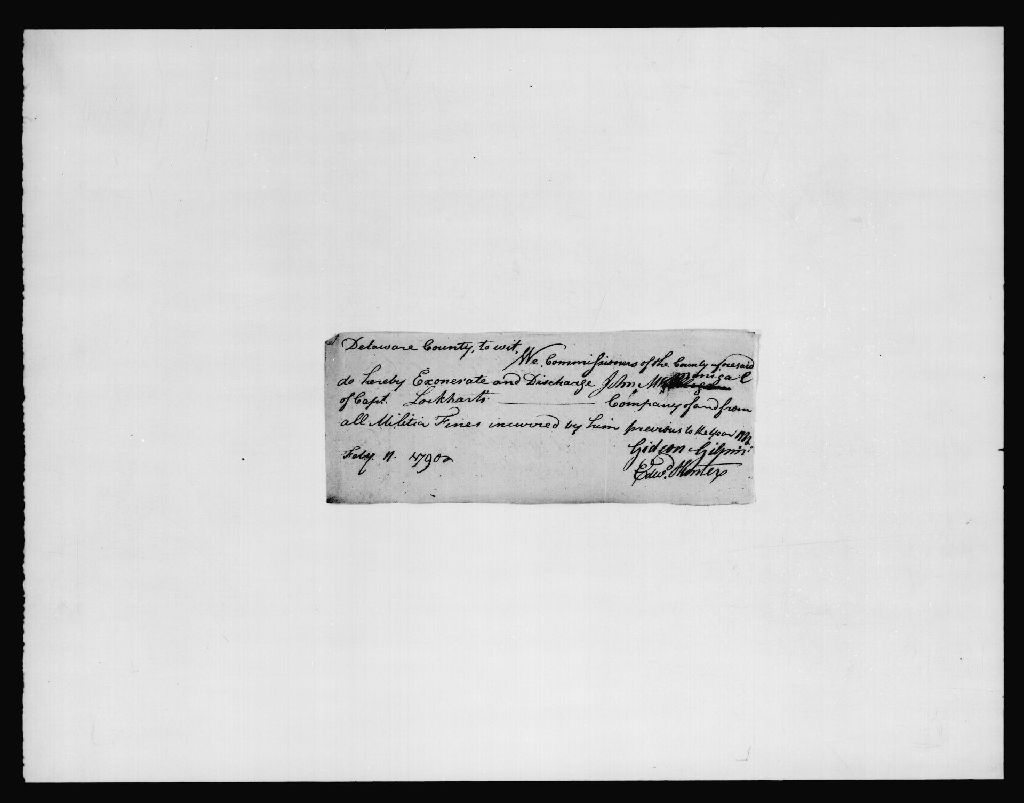 Delaware County, to wit,
We Commissioners of the County aforesaid
do hereby Exonerate and Discharge John Mc
of Capt. Lockharts Company of and from
all Militia Fines incurred by him previous to the year
Gideon Gilpin
Feby. 11. 1790 Edwd. Hunter